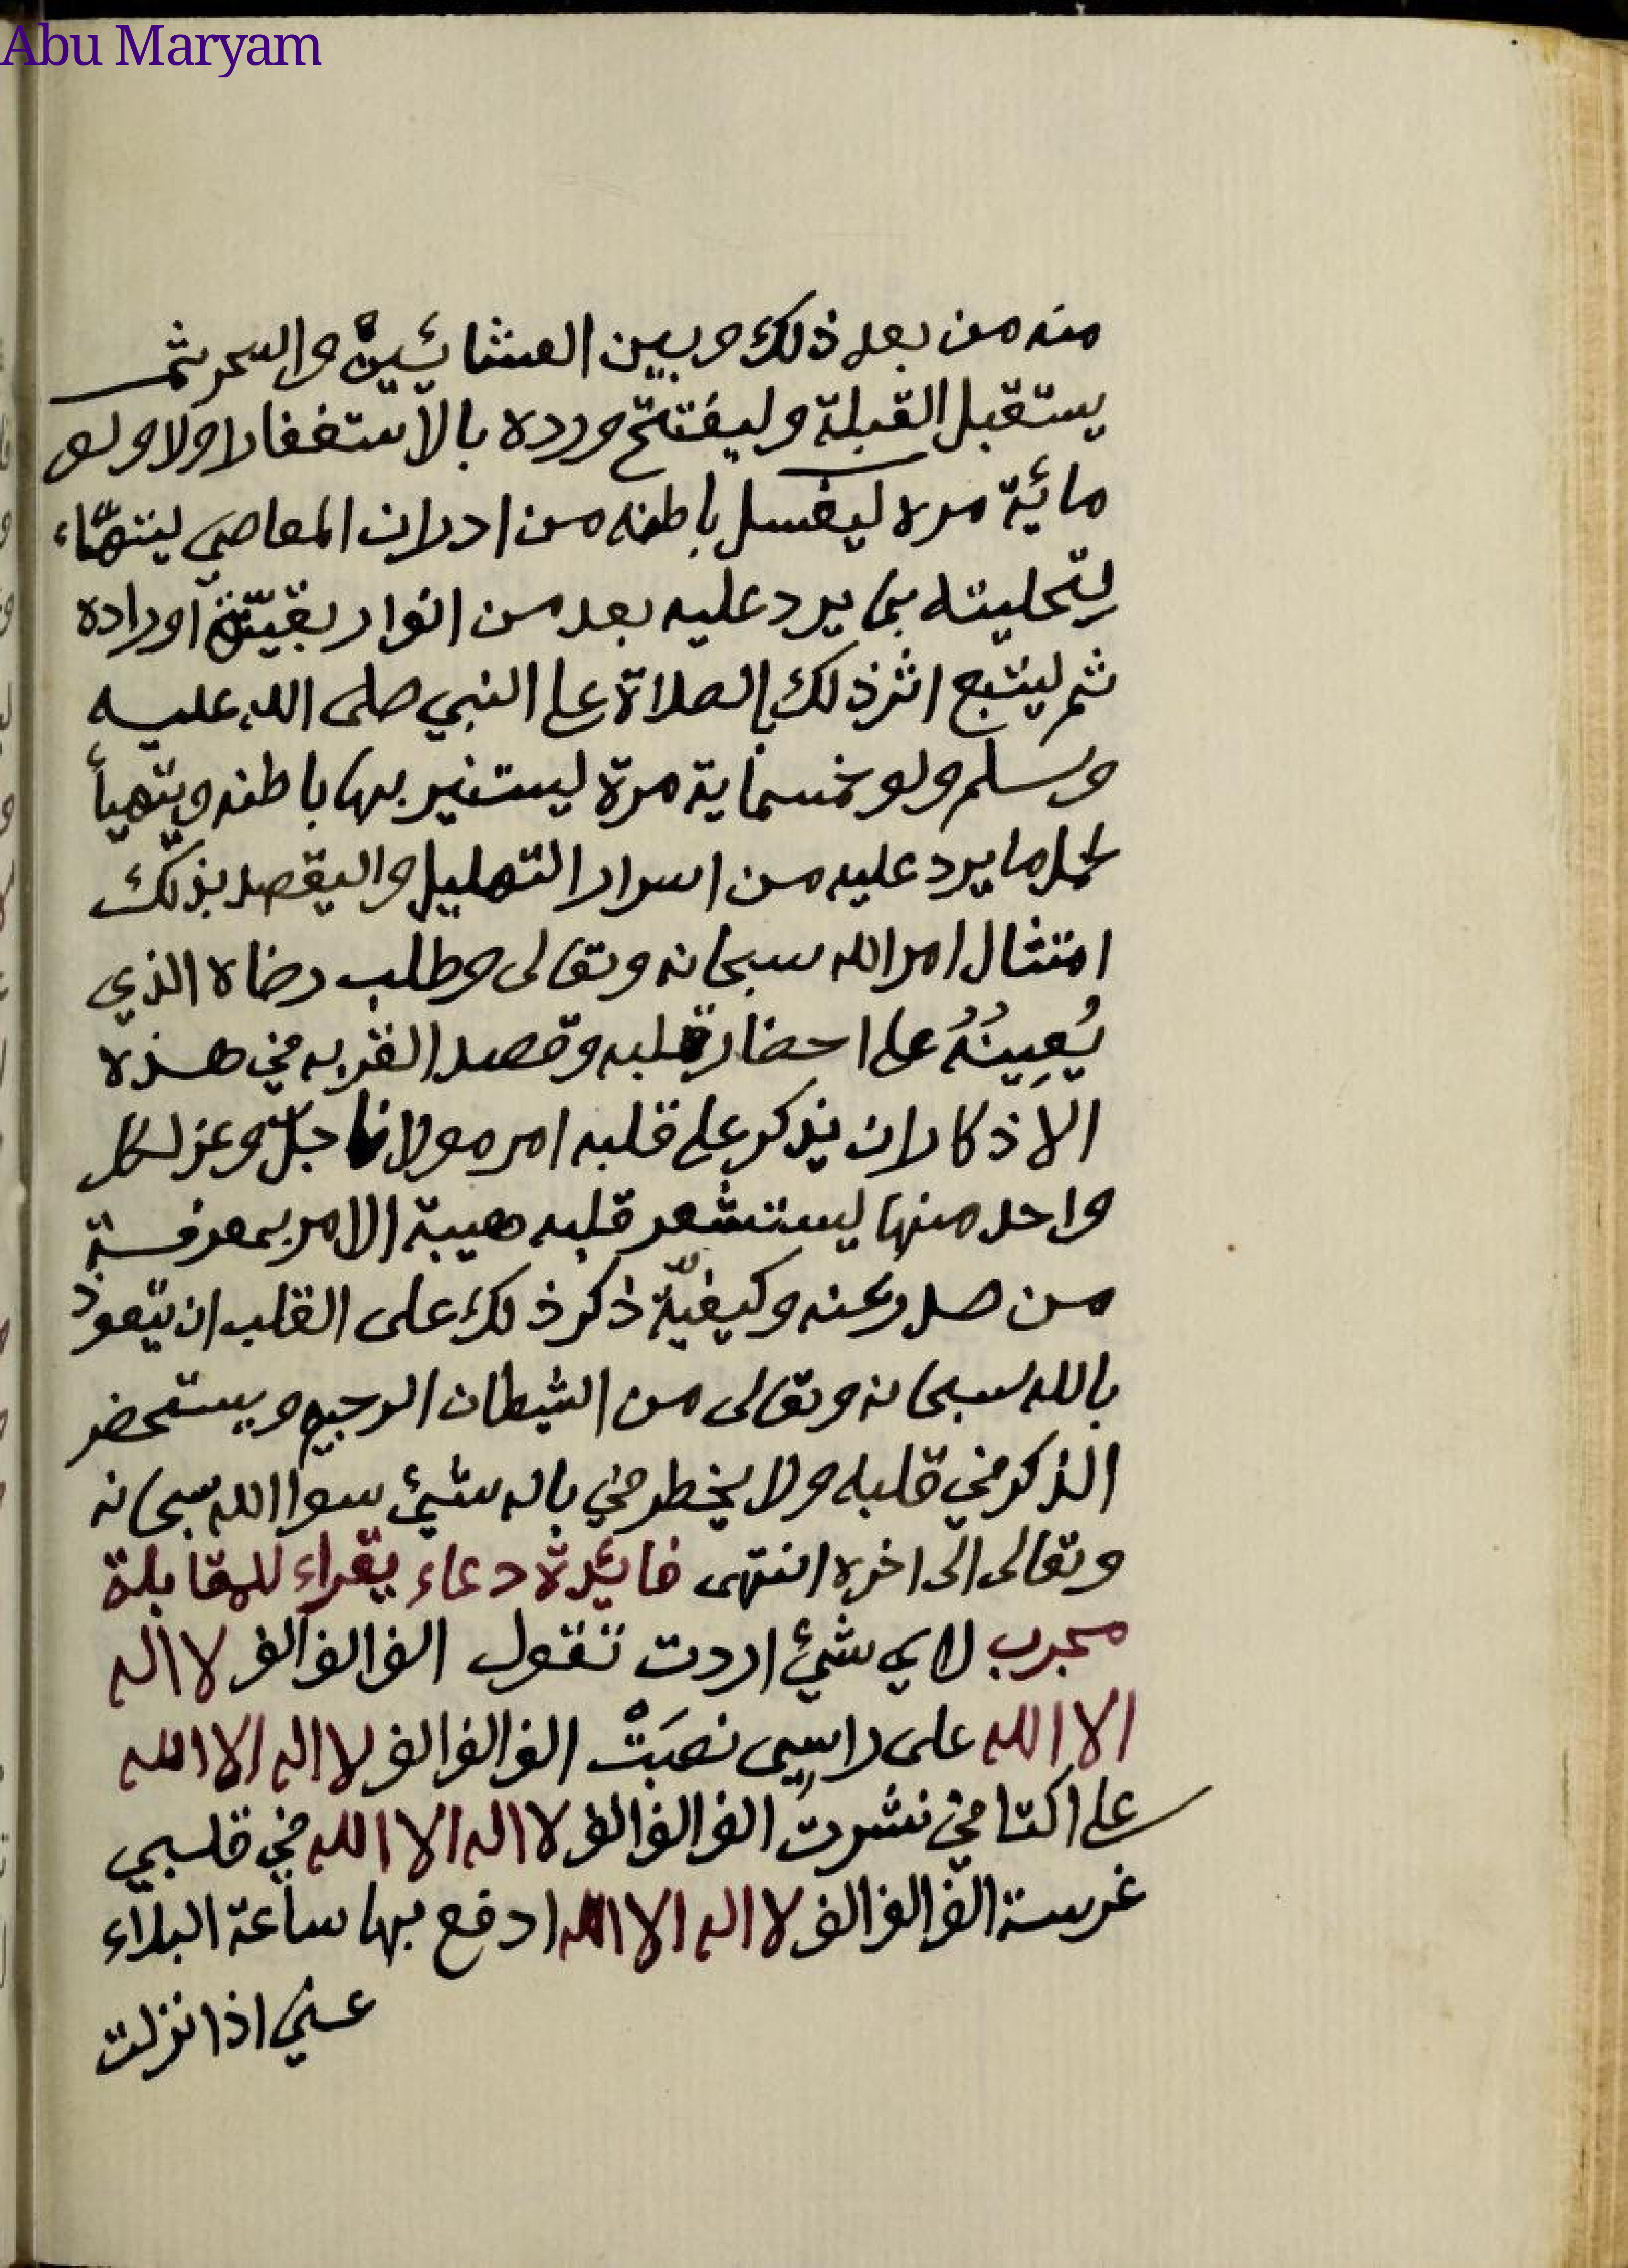 Abu Maryam
منه من بعد ذلك وبين العشائيين والسحر ثم
يستقبل القبلة وليفتتح ورده بالاستغفار اولا ولو
مائية مره ليغسل باطنه من ادران المعاصي ليتهياء
لتحليته بما يرد عليه بعد من انوار بقيّة اوراده
ثم ليتبع اثر ذلك بالصلاة على النبي صلى الله عليه
وسلم ولو خمسماية مرة ليستنير بها باطنه ويتهيأ
لحمل ما يرد عليه من اسرار التهليل واليقصد بذلك
امتثال امر الله سبحانه وتعالى وطلب رضاه الذي
يُعِينُهُ على احضار قلبه وقصد القربه في هذه
الاذكار ان يذكر على قلبه امر مولانا جلّ وعز لكل
واحد منها ليستشعر قلبه هيبة الامر بمعرفة
من صدر عنه وكيفيّة ذكر ذلك على القلب ان يتعوذ
بالله سبحانه وتعالى من الشيطان الرجيم ويستحضر
الذكر في قلبه ولا يخطر في باله شيئ سوا الله سبحانه
وتعالى الى اخره انتهى فائيدة دعاء يقراء للمقابلة
مجرب لاي شيئ اردت تقول الف الف الف لا اله
الا الله على راسي نصبَتْ الف الف الف لا اله الا الله
على اكتافي نشرت الف الف الف لا اله الا الله في قلبي
غرسة الف الف الف لا اله الا الله ادفع بها ساعة البلاء
عني اذا نزلت